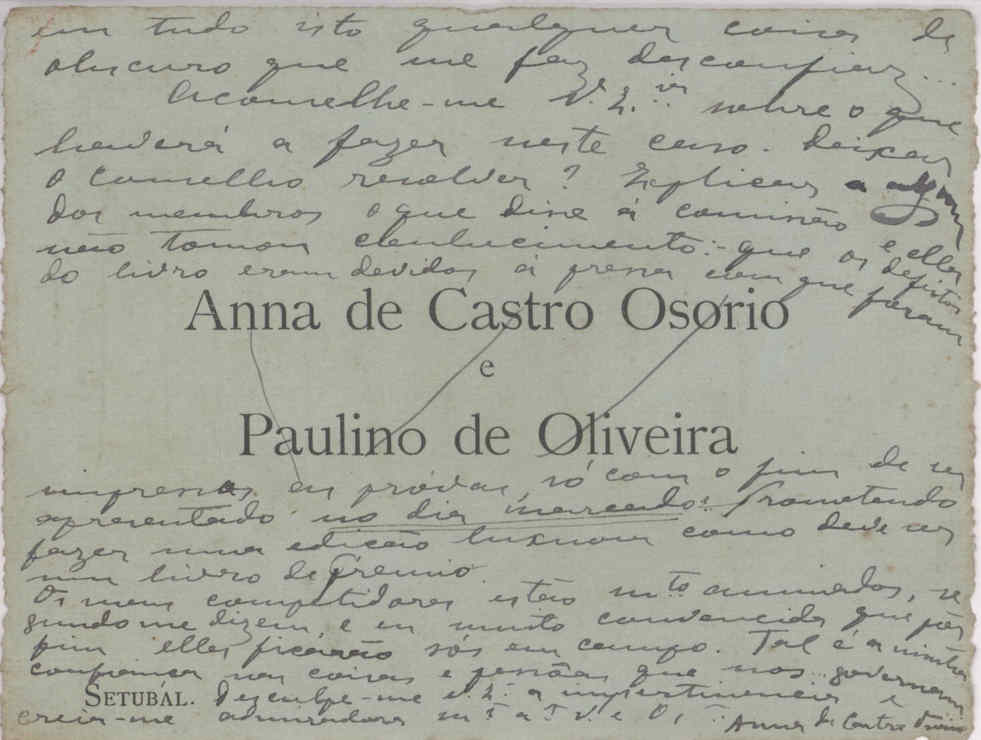 em tudo isto qualquer coisa de
obscuro que me faz desconfiar...
Aconselhe-me V. Ex.ª sobre o que
haverá a fazer neste caso. Deixar
o Conselho resolver? Explicar a algum
dos membros o que disse á comissão e elles
não tomam esclarecimento: que os defeitos
do livro eram devidos á pressa com que foram
Anna de Castro Osorio
e
Paulino de Oliveira
impressas as provas, só com o fim de ser
apresentado no dia marcado? Promettendo
fazer uma edição luxuosa como deve ser
um livro de Premio.
Os meus competidores estão m.to animados, se
gundo me dizem, e eu muito convencida que por
fim elles ficarão sós em campo. Tal é a minha
confiança nas coisas e pessoas que nos governam
SETUBAL. Desculpe-me V. Ex.ª a impertinencia e
creia-me admiradora m.to a.ta V.
Anna de Castro Osorio